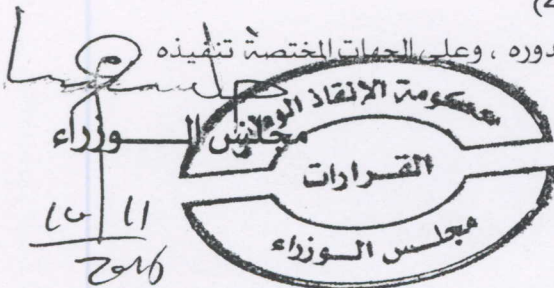 (2
دوره ، وعلى الجهات المختصة تنفيذه
مجلس الــوزراء
حكومة الإنقاذ الو
القـرارات
مجلس الـوزراء
11
2016